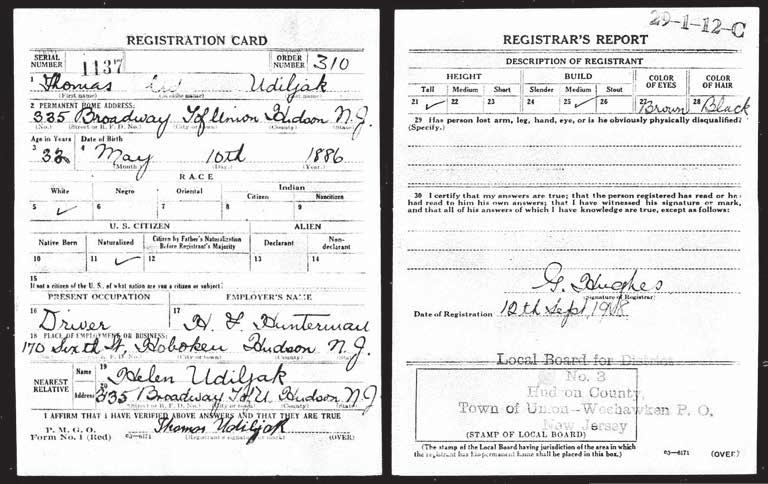 REGISTRATION CARD
SERIAL NUMBER 1137 ORDER NUMBER 310
1 Thomas Udiljak
(First name) (Middle name) (Last name)
2 PERMANENT HOME ADDRESS:
335 Broadway Tof Union Hudson N.J.
(No.) (Street or R. F. D. No.) (City or town) (County) (State)
Age in Years Date of Birth
3 32 4 May 10th 1886
(Month.) (Day.) (Year.)
RACE
White Negro Oriental Indian
Citizen Noncitizen
5 ✓ 6 7 8 9
U. S. CITIZEN ALIEN
Native Born Naturalized Citizen by Father's Naturalization Before Registrant's Majority Declarant Non-declarant
10 11 ✓ 12 13 14
15
If not a citizen of the U. S., of what nation are you a citizen or subject?
PRESENT OCCUPATION EMPLOYER'S NAME
16 Driver 17 H. F. Hunterman
18 PLACE OF EMPLOYMENT OR BUSINESS:
170 Sixth St. Hoboken Hudson N.J.
(No.) (Street or R. F. D. No.) (City or town) (County) (State)
NEAREST RELATIVE Name 19 Helen Udiljak
Address 20 335 Broadway Tof U Hudson N.J.
(No.) (Street or R. F. D. No.) (City or town) (County) (State)
I AFFIRM THAT I HAVE VERIFIED ABOVE ANSWERS AND THAT THEY ARE TRUE
P. M. G. O.
Form No. 1 (Red) 03-6171 Thomas Udiljak
(Registrant's signature or mark) (OVER)
29-1-12-C
REGISTRAR'S REPORT
DESCRIPTION OF REGISTRANT
HEIGHT BUILD COLOR OF EYES COLOR OF HAIR
Tall Medium Short Slender Medium Stout
21 ✓ 22 23 24 25 ✓ 26 27 Brown 28 Black
29 Has person lost arm, leg, hand, eye, or is he obviously physically disqualified?
(Specify.)
30 I certify that my answers are true; that the person registered has read or has
had read to him his own answers; that I have witnessed his signature or mark,
and that all of his answers of which I have knowledge are true, except as follows:
G. Hughes
(Signature of Registrar)
Date of Registration 12th Sept 1918
Local Board for District
No. 3
Hudson County,
Town of Union—Weehawken P. O.
New Jersey
(STAMP OF LOCAL BOARD)
(The stamp of the Local Board having jurisdiction of the area in which
the registrant has his permanent home shall be placed in this box.)
03-6171 (OVER)